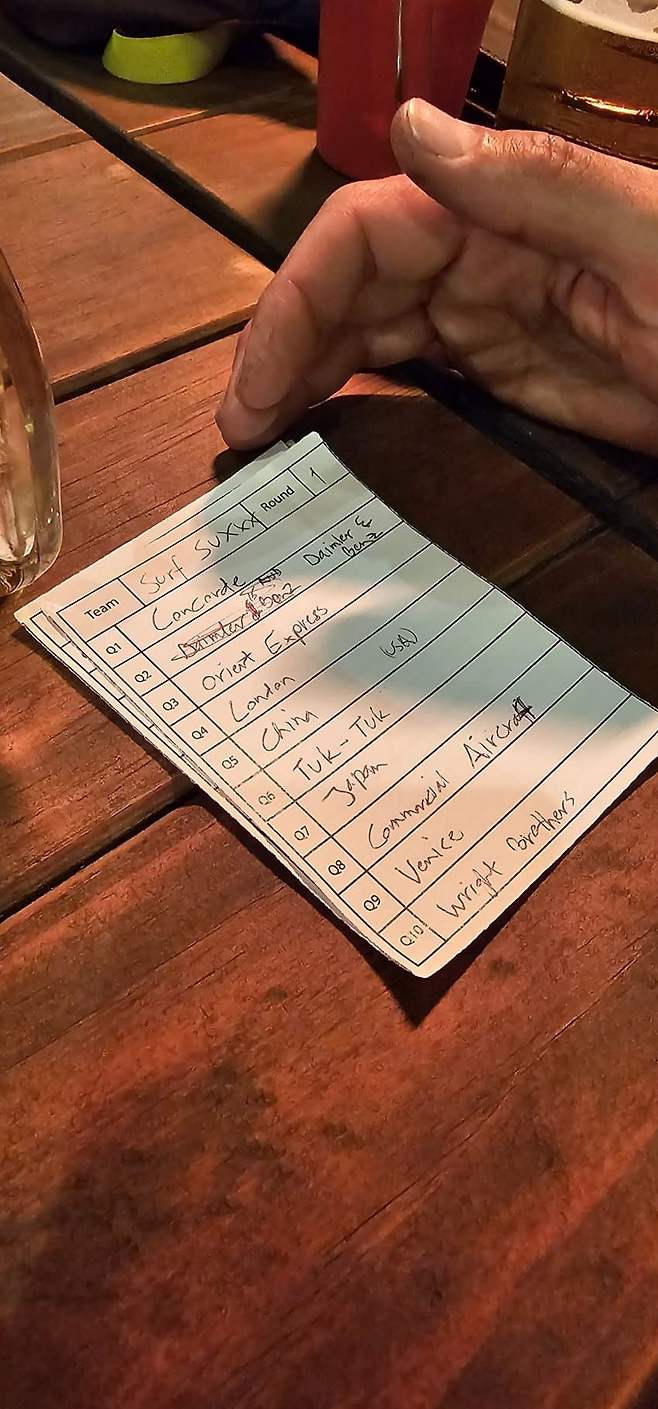 Team Surf Suxxx Round 1
Q1 Concorde
Q2 Daimler & Benz Daimler & Benz
Q3 Orient Express
Q4 London
Q5 China (USA)
Q6 Tuk-Tuk
Q7 Japan
Q8 Commercial Aircraft
Q9 Venice
Q10 Wright Brothers